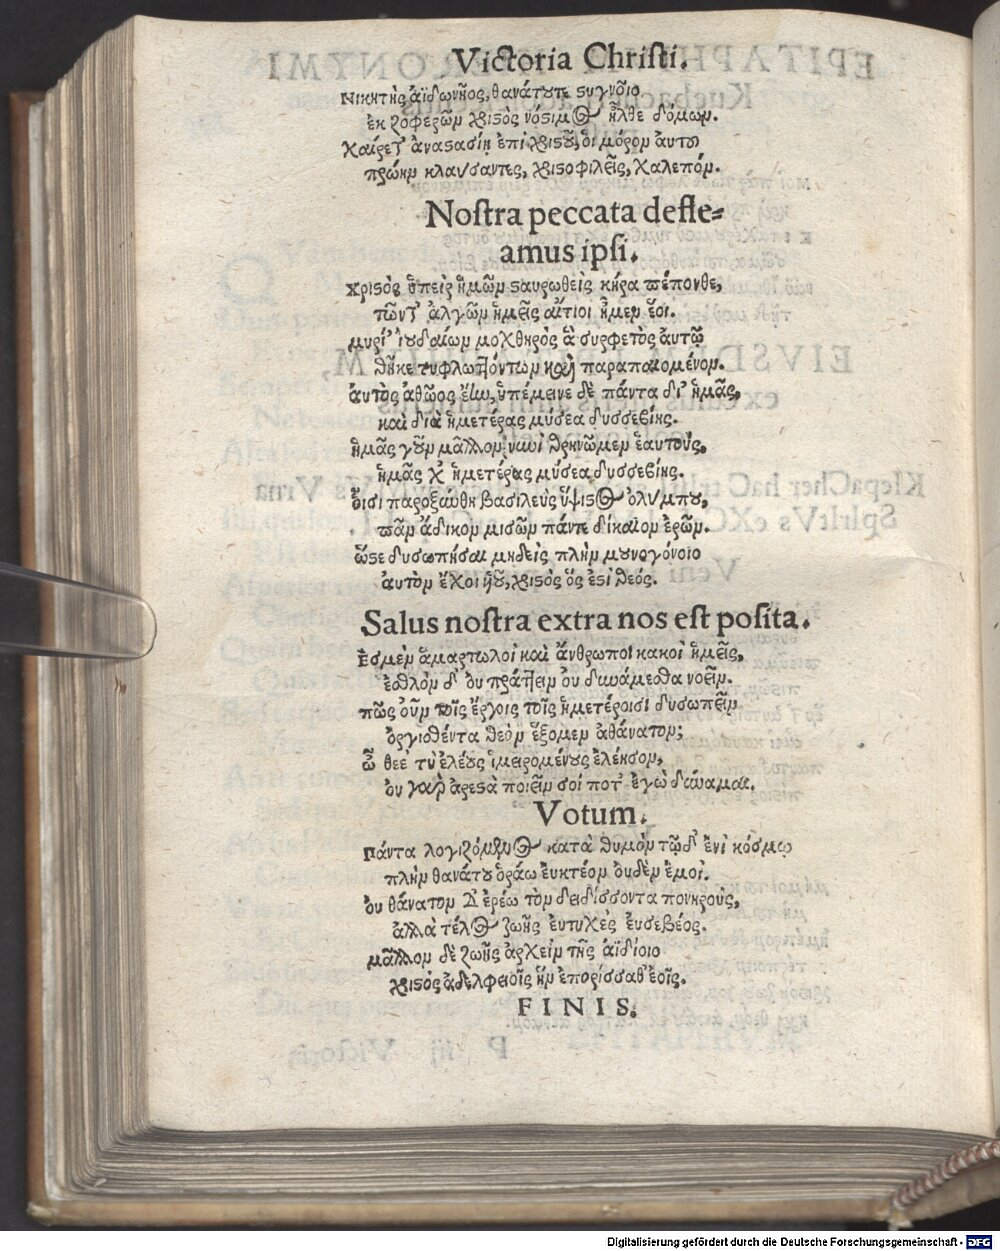 Victoria Christi.
Νικητὴς ἀϊδωνῆος, θανάτου τε στυγνοῖο
ἐκ ζοφερῶν χριστὸς νόστιμος ἦλθε δόμων.
Χαίρετ' ἀναστασίῃ ἐπὶ χριστοῦ, οἱ μόρον αὐτοῦ
πρώην κλαύσαντες, χριστοφιλεῖς, χαλεπόν.
Nostra peccata defle-
amus ipsi.
Χριστὸς ὑπεὶρ ἡμῶν σταυρωθεὶς κῆρα πέπονθε,
τῶνδ' ἀλγῶν ἡμεῖς αἴτιοι ἠμεν ἑοῖ.
μυρί' ἰουδαίων μοχθηρὸς ἃ συρφετὸς αὐτῷ
θῆκε τυφλωττόντων καὶ παραπαιομένων.
αὐτὸς ἀθῶος ἔην, ὑπέμεινε δὲ πάντα δι' ἡμᾶς,
καὶ διὰ ἡμετέρας μύσεα δυσσεβίης.
ἡμᾶς γοῦν μᾶλλον νωὶ θρηνῶμεν ἑαυτοὺς,
ἡμᾶς χ' ἡμετέρας μύσεα δυσσεβίης.
οἷσι παροξύνθη βασιλεὺς ὕψιστος ὀλύμπου,
πᾶν ἄδικον μισῶν πάντε δίκαιον ἐρῶν.
ὥστε δυσωπῆσαι μηδεὶς πλὴν μουνογόνοιο
αὐτὸν ἔχοι υἱοῦ, χριστὸς ὅς ἐστι θεός.
Salus nostra extra nos est posita.
Ἐσμὲν ἁμαρτωλοὶ καὶ ἄνθρωποι κακοὶ ἡμεῖς,
ἐσθλὸν δ' οὐ πράττειν οὐ δυνάμεσθα νοεῖν.
πῶς οὖν τοῖς ἔργοις τοῖς ἡμετέροισι δυσωπεῖν
ὀργισθέντα θεὸν ἕξομεν ἀθάνατον;
ὦ θεὲ τὺ ἐλέους ἱμειρομένους ἐλέησον,
οὐ γὰρ ἀρεστὰ ποιεῖν σοί ποτ' ἐγὼ δύναμαι.
Votum.
Πάντα λογιζόμενος κατὰ θυμὸν τῷδ' ἐνὶ κόσμῳ
πλὴν θανάτου ὁράω εὐκτέον οὐδὲν ἐμοί.
οὐ θάνατον δ' ἐρέω τὸν δειδίσσοντα πονηροὺς,
ἀλλὰ τέλος ζωῆς εὐτυχὲς εὐσεβέος.
μᾶλλον δὲ ζωῆς ἀρχεὶν τῆς ἀϊδίοιο
χριστὸς ἀδελφειοῖς ἣν ἐπορίσσαθ' ἑοῖς.
FINIS.
Digitalisierung gefördert durch die Deutsche Forschungsgemeinschaft - DFG